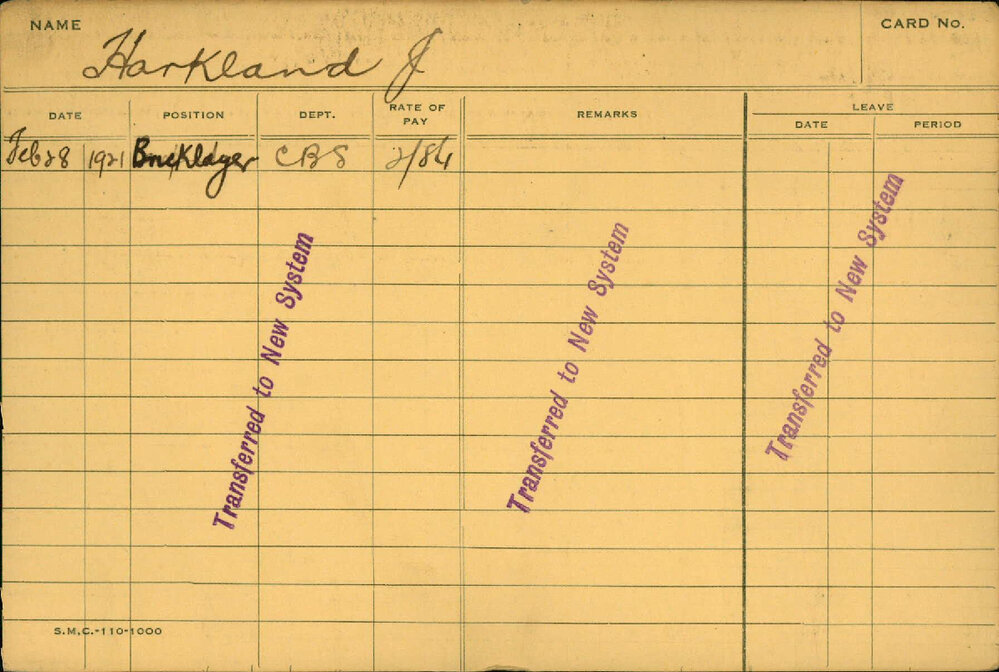 NAME
CARD No.
Harkland J
DATE POSITION DEPT. RATE OF PAY REMARKS LEAVE
DATE PERIOD
Feb 28 1921 Bricklayer CBS
Transferred to New System
Transferred to New System
Transferred to New System
S.M.C.-110-1000